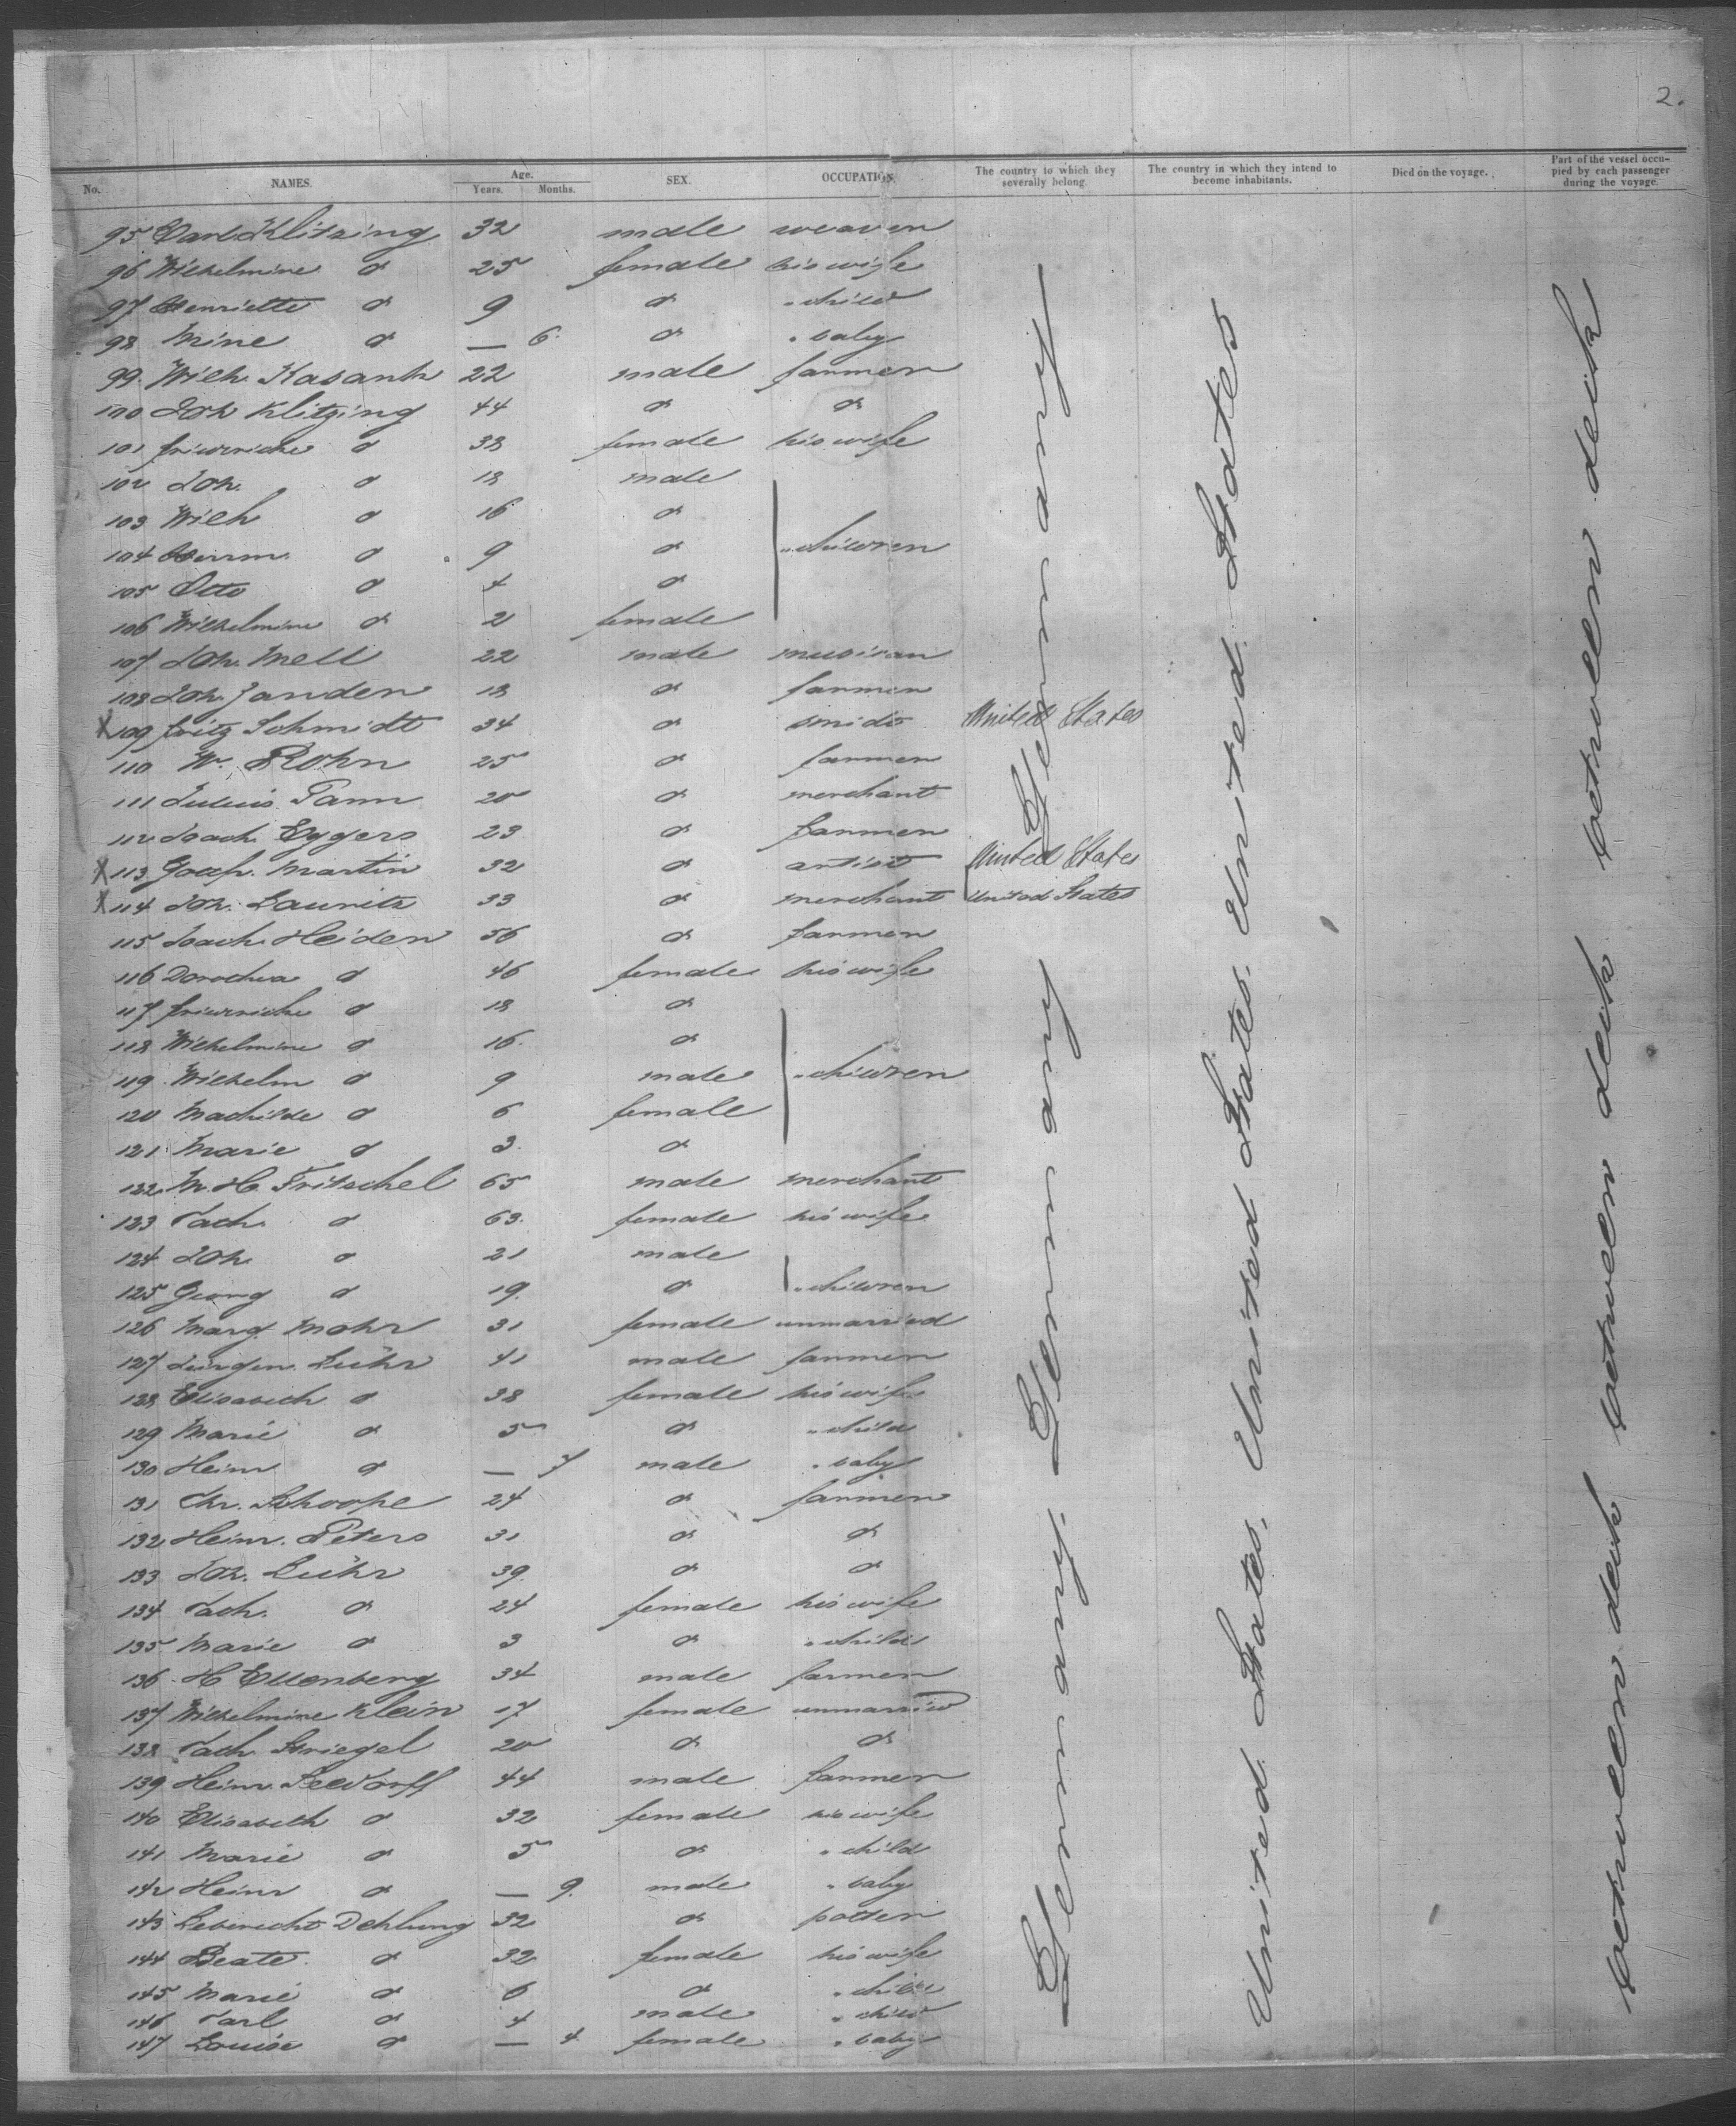 2.
No. NAMES. Age. Years. Months. SEX. OCCUPATION. The country to which they severally belong. The country in which they intend to become inhabitants. Died on the voyage. Part of the vessel occupied by each passenger during the voyage.
95 Carl Klitzing 32 male weaver
96 Wilhelmine d 25 female his wife
97 Henriette d 9 d " child
98 Mine d — 6 d " baby
99 Wilh. Kasanth 22 male farmer
100 Joh Klitzing 44 d d
101 Friederiche d 38 female his wife
102 Joh. d 18 male
103 Wilh d 16 d
104 Herrm. d 9 d " children
105 Otto d 4 d
106 Wilhelmine d 2 female
107 Joh. Mell 22 male musican
108 Joh. Janden 18 d farmer
X 109 Fritz Schmidt 34 d smids United States
110 W. Rohn 25 d farmer
111 Julius Tamm 20 d merchant
112 Joach. Eggers 23 d farmer
X 113 Joach. Martin 32 d artist United States
X 114 Joh. Lauritz 33 d merchant United States
115 Joach. Heiden 56 d farmer
116 Dorothea d 46 female his wife
117 Friederiche d 18 d
118 Wilhelmine d 16 d
119 Wilhelm d 9 male " children
120 Mathilde d 6 female
121 Marie d 3 d
122 M. H. Fritschel 65 male merchant
123 Cath. d 63 female his wife
124 Joh. d 21 male
125 Georg d 19 d " children
126 Marg. Mohr 31 female unmarried
127 Jürgen Lühr 41 male farmer
128 Elisabeth d 38 female his wife
129 Marie d 5 d " child
130 Heinr d — 7 male " baby
131 Chr. Schoope 24 d farmer
132 Heinr. Peters 31 d d
133 Joh. Lühr 39 d d
134 Cath. d 24 female his wife
135 Marie d 3 d " child
136 H Ellenberg 34 male farmer
137 Wilhelmine Klein 17 female unmarried
138 Cath Striegel 20 d d
139 Heinr. Seedorff 44 male farmer
140 Elisabeth d 32 female his wife
141 Marie d 5 d " child
142 Heinr d — 9 male " baby
143 Leberecht Dehlung 32 d potter
144 Beate d 32 female his wife
145 Marie d 6 d " child
146 Carl d 4 male " child
147 Louise d — 4 female " baby
Germany. Germany Germany
United States. United States. United States
between deck between deck between deck